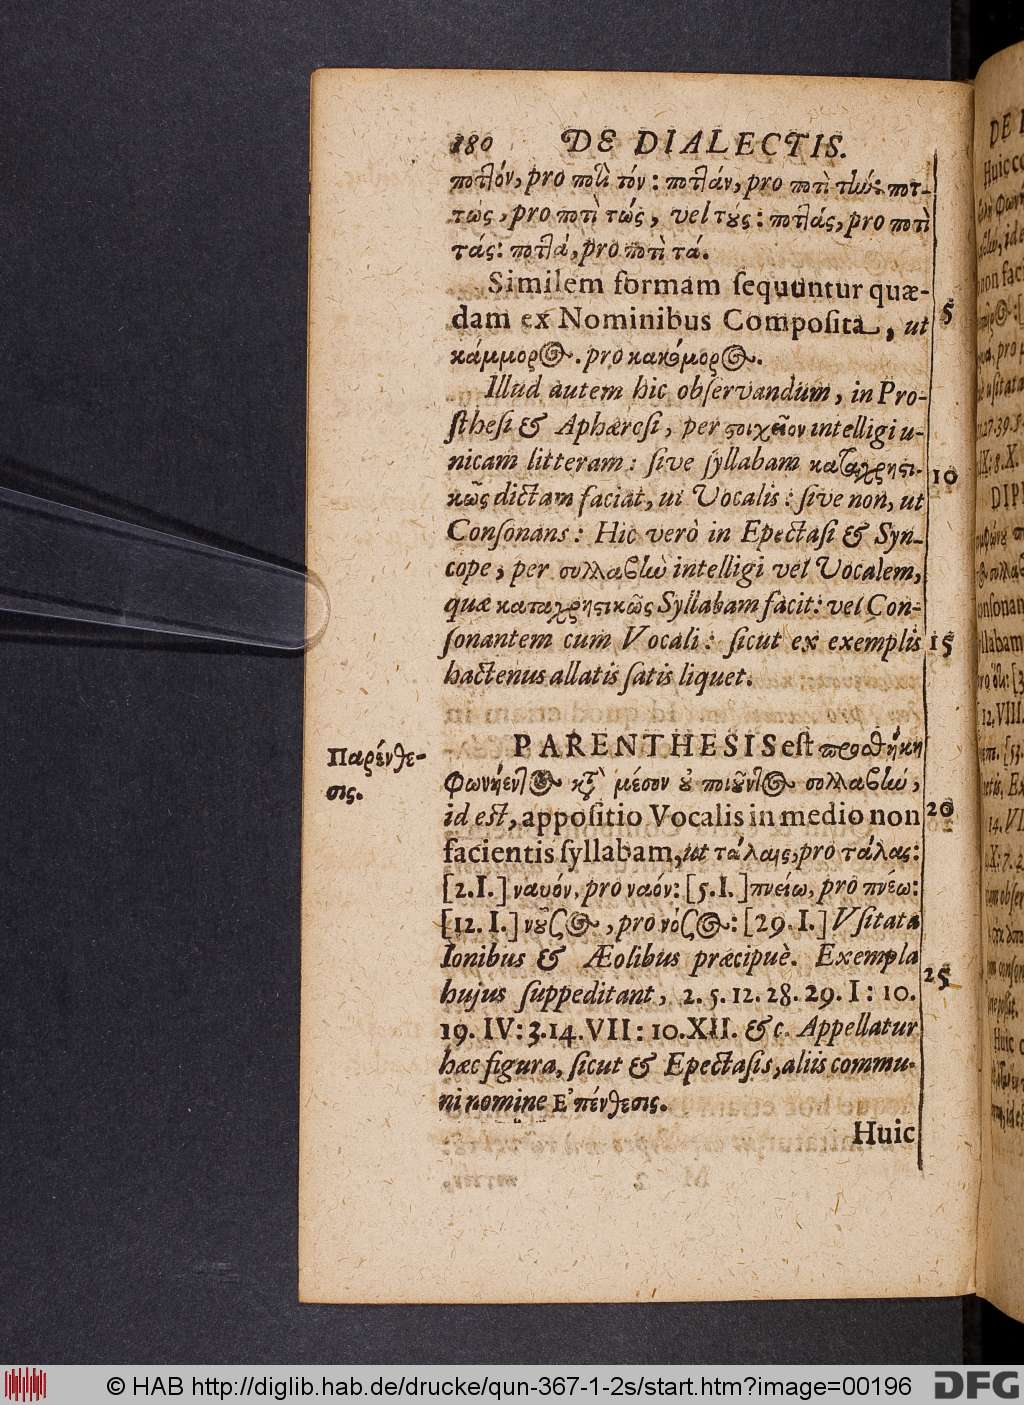 180 DE DIALECTIS.
ποτ̔τόν, pro ποτὶ τόν: ποτ̔τάν, pro ποτὶ τὴν: ποτ-
τως, pro ποτὶ τώς, vel τȣ́ς: ποτ̔τάς, pro ποτὶ
τάς: ποτ̔τὰ, pro ποτὶ τά.
Similem formam ſequuntur quæ-
dam ex Nominibus Compoſita, ut 5
κάμμορος. pro κακόμορος.
Illud autem hic obſervandum, in Pro-
ſtheſi & Aphæreſi, per ϛοιχεῖον intelligi u-
nicam litteram: ſive ſyllabam καταχρηϛι- 10
κῶς dictam faciat, ut Vocalis: ſive non, ut
Conſonans: Hic verò in Epectaſi & Syn-
cope, per συλλαβὴν intelligi vel Vocalem,
quæ καταχρηϛικῶς Syllabam facit: vel Con-
ſonantem cum Vocali: ſicut ex exemplis 15
hactenus allatis ſatis liquet.
Παρένθε-
σις.
PARENTHESIS eſt προσθήκη
φωνήεντος κατὰ μέσον ȣ̓ ποιοῦντος συλλαβὴν,
id eſt, appoſitio Vocalis in medio non 20
facientis ſyllabam, ut τάλαις, pro τάλας:
[2. I.] ναυόν, pro ναόν: [5. I.] πνείω, pro πνέω:
[12. I.] νοῦσος, pro νόσος: [29. I.] Uſitata
Ionibus & Æolibus præcipuè. Exempla
hujus ſuppeditant, 2. 5. 12. 28. 29. I: 10. 25
19. IV: 3. 14. VII: 10. XII. &c. Appellatur
hæc figura, ſicut & Epectaſis, aliis commu-
ni nomine Ε᾿πένθεσις.
Huic
© HAB http://diglib.hab.de/drucke/qun-367-1-2s/start.htm?image=00196
DFG